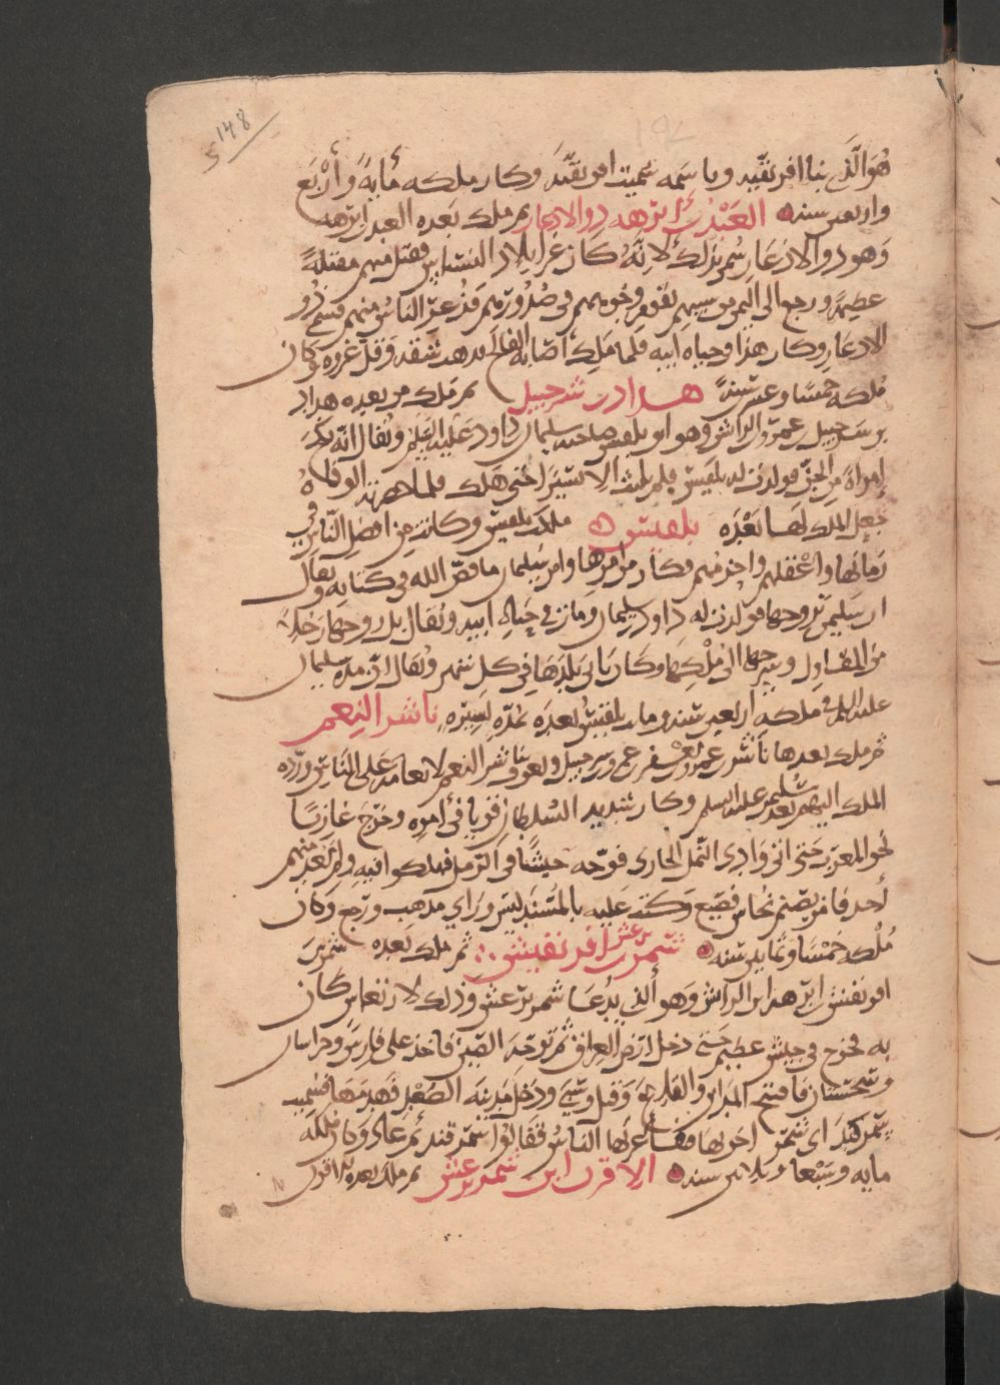 148
5
192
هُوَ الَّذي بنا افريقيه وباسمه سُميت افريقيَّه وكان ملكه مايةً وَأرْبَع
واربعين سنه العَبْدُ بن ابرَهه ذو الادعار ثم ملك بَعده العبد بن ابرهه
وَهو ذو الادعَار سُمي بذلك لانّهُ كان غزا بلاد النسناس فقتل منهم مقتلةً
عظيمةً ورجع الى اليمن من سبيهم بقوم وجوههم في صُدُورهم فذُعر الناسُ منهم فسمي ذو
الادعار وكان هذا في حياه ابيه فلما ملك اصابه الفالج فذهب شقه وقل غزوه وكان
مُلكه خمسًا وعشرين سنةً هداد بن شرحبيل ثم ملك من بعده هداد
بن شرحبيل بن عمرو بن الرائش وهو ابو بلقيس صاحبه سليمان بن داود عليه السلم ويُقال انه نكح
امراةً من الجنّ فولدت له بلقيس فلم يلبث الا يسيرًا حتى هلك فلما حضرته الوفاهُ
جعل الملك لها بَعْدَه بلقيس ملكت بلقيس وكانت من افضل النّاس في
زمانها واعقلهم واحزمهم وكان من امرها وامر سُليمان ما قصّ الله في كتابه ويقال
ان سليمن تزوجها فولدت له داود بن سليمان ومات في حَياه ابيه ويُقال بل زوجها رَجُلاً
من المقاول وسرحها الى مُلْكها وكان ياتى بَلدَهَا في كل شهر ويُقال انّ مده سليمان
عليه السلم في ملكه اربعين سنه ومات بلقيس بعدَه بمدّه يسيره ناشر النِعم
ثم ملك بعدها ناشر بن عمرو بن يَعْفر بن عمرو بن شرحبيل ويعرف بناشر النعم لانعامه على النّاس وردّه
الملك اليهم بعد سُليمن عليه السلم وكان شديد السّلطان قويا في أمره وخرَج غازيًا
نحو المغرب حتى اتى وَادِى الرّمل الجارى فوَجّه جيشًا في الرّمل فهلكوا فيهِ ولم يَعُد منهم
أحد فامر بصنم نُحاس فصُنع وَكتب عليه بالمُسْنَد ليس وراي مذهب ورجع وكان
مُلكه خَمْسًا وثمانين سنه شمر يرعش بن افريقيش ثم ملك بَعده شمر بن
افريقيش بن ابرهه ابن الرايش وَهو الذي يُدعَا شمر يَرعش وذلك لارتعاشٍ كان
به فخرج في جيش عظيم حَتى دخل ارض العِراق ثم توجّه الى الصّين فاخذ على فارس وخراسان
وسجستان فافتتح المداين والقلاعَ وَقتل وسَبى ودخل مدينه الصُّغد فهدمَهَا فسُميت
شمركند اى شمر اخربها فعَرّبها النّاسُ فقالوا سَمرقند ثم عاد وكان ملكه
مايه وسَبْعا وثلاثين سنه الاقرن ابن شمر يرعش ثم ملك بعده الاقرن